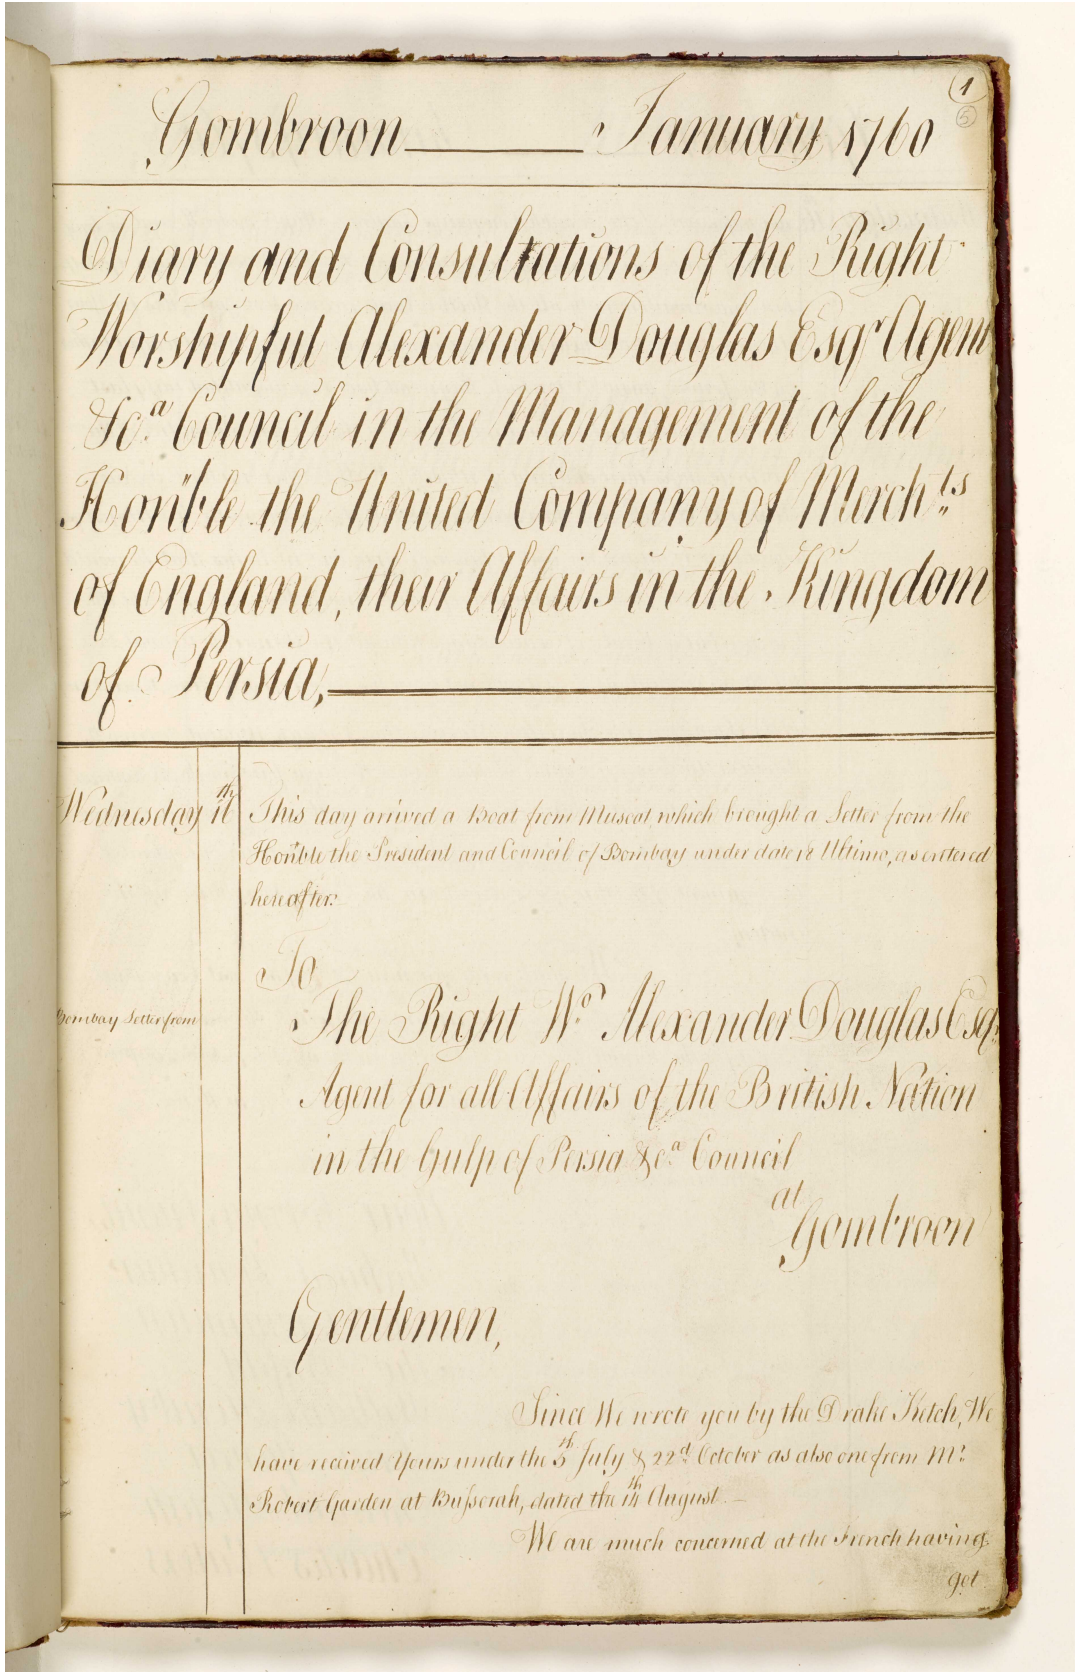 1
5
Gombroon January 1760
Diary and Consultations of the Right
Worshipful Alexander Douglas Esqr. Agent
&ca. Council in the Management of the
Hon'ble the United Company of Merchts.
of England, their Affairs in the Kingdom
of Persia,
Wednesday 16th This day arrived a Boat from Muscat which brought a Letter from the
Hon'ble the President and Council of Bombay under date 12 Ultimo, as entered
hereafter.
To
Bombay Letter from
The Right Wo. Alexander Douglas Esqr.
Agent for all Affairs of the British Nation
in the Gulp of Persia &ca. Council
at
Gombroon
Gentlemen,
Since We wrote you by the Drake Ketch, We
have received Yours under the 5th July & 22d. October as also one from Mr.
Robert Garden at Bussorah, dated the August.
We are much concerned at the French having
got